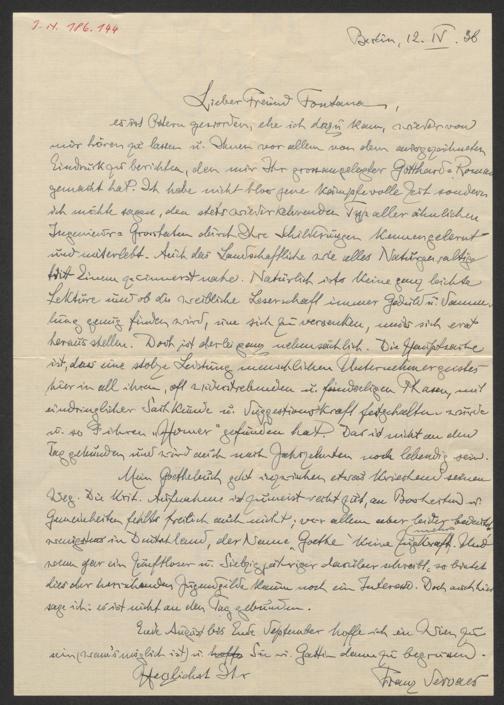 J. N. 186.144
Berlin, 12. IV. 36
Lieber Freund Fontana,
es ist Ostern geworden, ehe ich dazu kam, wieder von
mir hören zu lassen u. Ihnen vor allem von dem ausgezeichneten
Eindruck zu berichten, den mir Ihr grossangelegter Gotthard-Roman
gemacht hat. Ich habe nicht bloss jene kämpfevolle Zeit sondern
ich möchte sagen, den stets wiederkehrenden Typ aller ähnlichen
Ingenieurs-Grosstaten durch Ihre Schilderungen kennengelernt
und miterlebt. Auch das Landschaftliche wie alles Naturgewaltige
tritt Einem zuinnerst nahe. Natürlich ists keine ganz leichte
Lektüre und ob die weibliche Leserschaft immer Geduld u. Samm-
lung genug finden wird, um sich zu versenken, muss sich erst
herausstellen. Doch ist derlei ganz nebensächlich. Die Hauptsache
ist, dass eine stolze Leistung menschlichen Unternehmergeistes
hier in all ihren, oft widerstrebenden u. Phasen, mit
eindringlicher Sachkunde u. Suggestionskraft festgehalten wurde
u. so Ihren "Homer" gefunden hat. Das ist nicht an den
Tag gebunden und wird auch nach Jahrzehnten noch lebendig sein.
Mein Goethebuch geht inzwischen etwas kriechend seinen
Weg. Die krit. Aufnahme ist zumeist recht gut, an Bosheiten u.
Gemeinheiten fehlts freilich auch nicht; vor allem aber leider
wenigstens in Deutschland, der Name "Goethe" keine Zugkraft. Und
wenn gar ein Zunftloser u. Siebzigjähriger darüber schreibt, so bietet
dies der herrschenden Jugendgilde kaum noch ein Interesse. Doch auch hier
sage ich: es ist nicht an den Tag gebunden.
Ende August bis Ende September hoffe ich in Wien zu
sein (wenn's möglich ist) u. Sie u. Gattin dann zu begrüssen.
Herzlichst Ihr
Franz Servaes